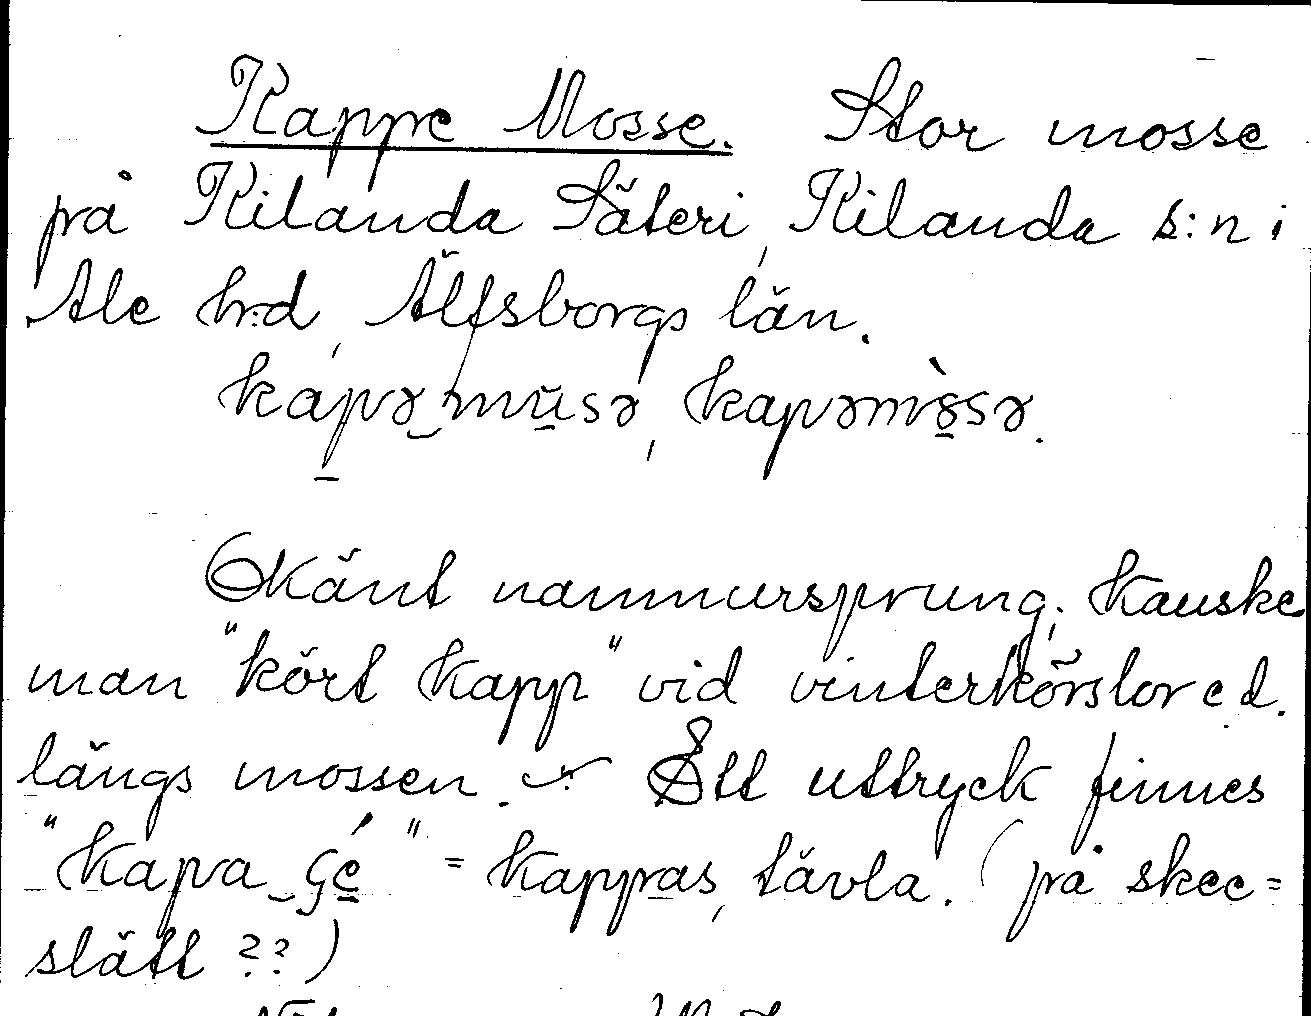 Kappe Mosse. Stor mosse
på Kilanda Säteri, Kilanda s:n i
Ale h:d, Älfsborgs län.
kapə musə, kapəmòsə.
Okänt namnursprung; kanske
man "kört kapp" vid vinterkörslor e d.
längs mossen. Ett uttryck finnes
"kapa sé" = kappas, tävla. (på skee=
slätt ??)